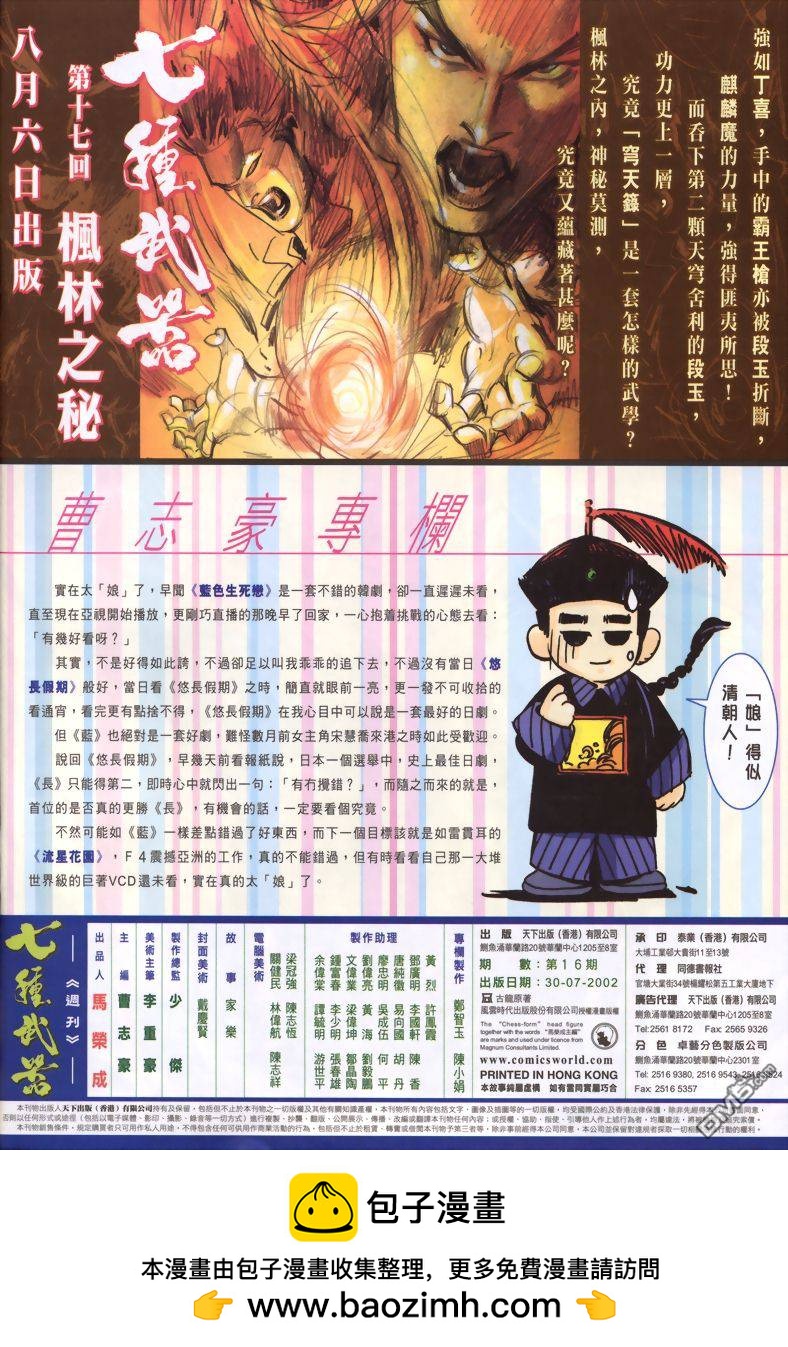 強如丁喜，手中的霸王槍亦被段玉折斷，
麒麟魔的力量，強得匪夷所思！
而吞下第二顆天穹舍利的段玉，
功力更上一層，
究竟「穹天籙」是一套怎樣的武學？
楓林之內，神秘莫測，
究竟又蘊藏著甚麼呢？
七種武器
第十七回 楓林之秘
八月六日出版
曹志豪專欄
實在太「娘」了，早聞《藍色生死戀》是一套不錯的韓劇，卻一直遲遲未看，
直至現在亞視開始播放，更剛巧直播的那晚早了回家，一心抱着挑戰的心態去看：
「有幾好看呀？」
其實，不是好得如此誇，不過卻足以叫我乖乖的追下去，不過沒有當日《悠
長假期》般好，當日看《悠長假期》之時，簡直就眼前一亮，更一發不可收拾的
看通宵，看完更有點捨不得，《悠長假期》在我心目中可以說是一套最好的日劇。
但《藍》也絕對是一套好劇，難怪數月前女主角宋慧喬來港之時如此受歡迎。
說回《悠長假期》，早幾天前看報紙說，日本一個選舉中，史上最佳日劇，
《長》只能得第二，即時心中就閃出一句：「有冇攪錯？」，而隨之而來的就是，
首位的是否真的更勝《長》，有機會的話，一定要看個究竟。
不然可能如《藍》一樣差點錯過了好東西，而下一個目標該就是如雷貫耳的
《流星花園》，F4震撼亞洲的工作，真的不能錯過，但有時看看自己那一大堆
世界級的巨著VCD還未看，實在真的太「娘」了。
「娘」得似
清朝人！
七種武器
《週刊》
出品人 馬榮成
主編 曹志豪
美術主筆 李重豪
製作總監 少傑
封面美術 戴慶賢
故事 家樂
電腦美術
梁冠強 陳志恆
關健民 林偉航 陳志祥
製作助理
黃烈 許鳳霞
鄧廣明 李國軒 陳香
唐純徽 易向國 胡丹
廖忠明 吳成伍 何平
劉偉亮 黃海 劉毅鵬
文偉業 梁偉坤 鄒晶陶
鍾富春 李少明 張春雄
余偉棠 譚毓明 游世平
專欄製作 鄭智玉 陳小娟
出版 天下出版（香港）有限公司
鰂魚涌華蘭路20號華蘭中心1205至8室
期數：第16期
出版日期：30-07-2002
古龍原著
風雲時代出版股份有限公司授權漫畫版權
The "Chess-form" head figure
together with the words "馬榮成主編"
are marks and used under licence from
Magnum Consultants Limited.
www.comicsworld.com
PRINTED IN HONG KONG
本故事純屬虛構 如有雷同實屬巧合
承印 泰業（香港）有限公司
大埔工業邨大貴街11至13號
代理 同德書報社
官塘大業街34號楊耀松第五工業大廈地下
廣告代理 天下出版（香港）有限公司
鰂魚涌華蘭路20號華蘭中心1205至8室
Tel: 2561 8172 Fax: 2565 9326
分色 卓藝分色製版公司
鰂魚涌華蘭路20號華蘭中心2301室
Tel: 2516 9380, 2516 9543,
Fax: 2516 5357
本刊物出版人天下出版（香港）有限公司持有及保留，包括但不止於本刊物之一切版權及其他有關知識產權。
包子漫畫
本漫畫由包子漫畫收集整理，更多免費漫畫請訪問
👉 www.baozimh.com 👈